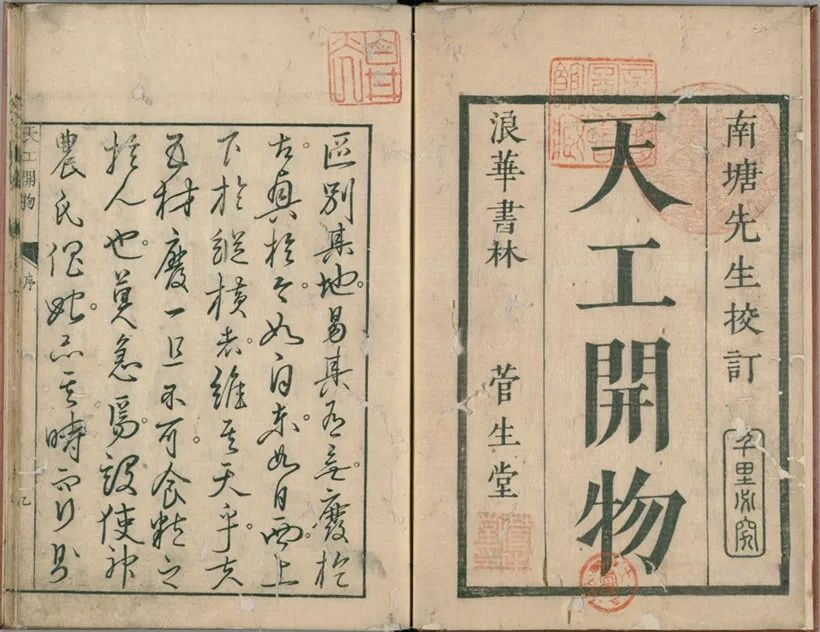 南塘先生校訂
千里必究
天工開物
浪華書林 菅生堂
區別其地。易其有無。廢於
古。具於今。如自東。如自西。上
下於縱橫者。維其天乎。夫
五材廢一且不可。食粒之
於人也。莫急焉。設使神
農氏 其時而行則
天工開物 序